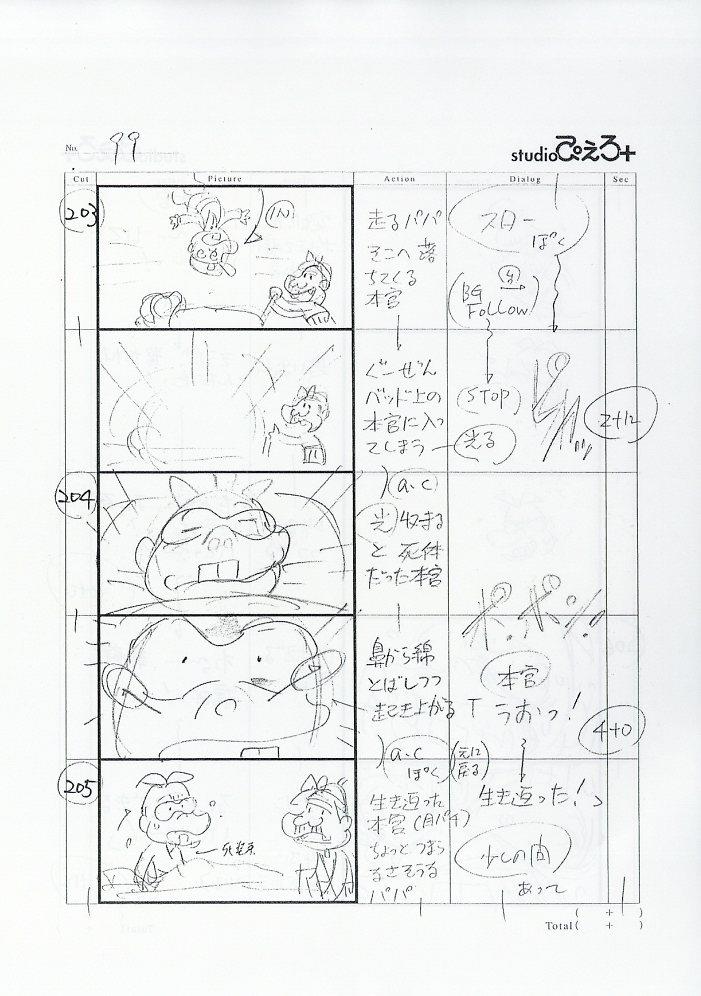 No. 99
studioぴえろ+
Cut Picture Action Dialog Sec
203
IN
走るパパ
そこへ落
ちてくる
本官
スロー
ぽく
(BG
FOLLOW)
ぐーぜん
バッド上の
本官に入っ
てしまう
(STOP)
光る
2+12
204
(a.c)
光収まる
と 死体
だった本官
鼻から綿
とばしつつ
起き上がる
ポ.ポッ
本官
「うおっ!
4+0
205
(a.c
ぽく)
(元に
戻る)
生き返った
本官(目パチ)
ちょっとつまら
なさそうな
パパ
死装束
生き返った!」
少しの間
あって
( + )
Total( + )